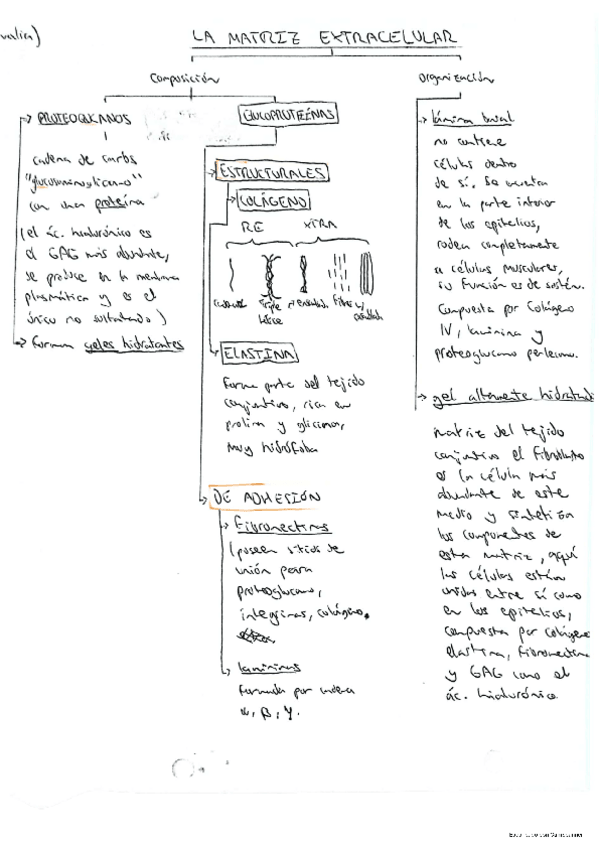 LA MATRIZ EXTRACELULAR
Composición
Organización
PROTEOGLICANOS
cadena de carbs
"glucosaminoglicano"
con una proteína
(el ác. hialurónico es
el GAG más abundante,
se produce en la membrana
plasmática y es el
único no sulfatado)
Forman geles hidratantes
GLUCOPROTEÍNAS
ESTRUCTURALES
COLÁGENO
RE
XTRA
triple
hélice
fibra
ELASTINA
Forma parte del tejido
conjuntivo, rica en
prolina y glicina,
muy hidrófoba
DE ADHESIÓN
Fibronectinas
(poseen sitios de
unión para
proteoglicano,
integrinas, colágeno.
lamininas
Formada por cadena
α, β, γ.
lámina basal
no contiene
células dentro
de sí. Se
en la parte inferior
de los epitelios,
rodea completamente
a células musculares,
su función es de sostén.
Compuesta por Colágeno
IV, laminina y
proteoglicano perlecano.
gel altamente hidratado
matriz del tejido
conjuntivo el fibroblasto
es la célula más
abundante de este
medio y sintetiza
los componentes de
esta matriz, aquí
las células están
unidas entre sí como
en los epitelios,
compuesta por colágeno
elastina, fibronectina
y GAG como el
ác. hialurónico.